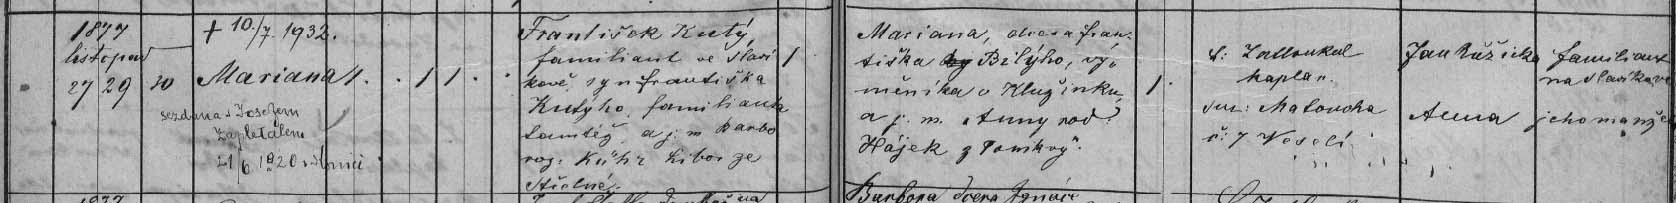 1877
listopad
27 29 30
† 10./7. 1932.
Mariana 1. . 1 1 .
sezdána s Josefem
Zapletalem
21/6 1920
František Kutý,
familiant ve Slaví
kově, syn Františka
Kutýho, familianta
tamtéž a j. m. Barbo
roz. Libor ze
Střelné.
1
Mariana, dcera Fran
tiška Bílýho, vý
měníka v Klužínku,
a j. m. Anny rod.
Hájek z
1.
kaplan.
Matouška
č: 7 Veselí
Jan Růžička
Anna
familiant
na Slavíkově
jeho manžel
1877
Barbora dcera Ignáce